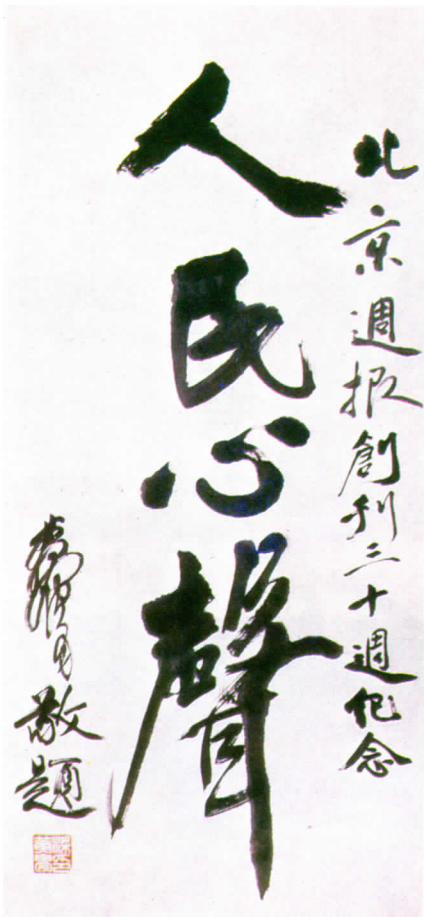 北京週报創刊三十週纪念
人民心聲
敬題